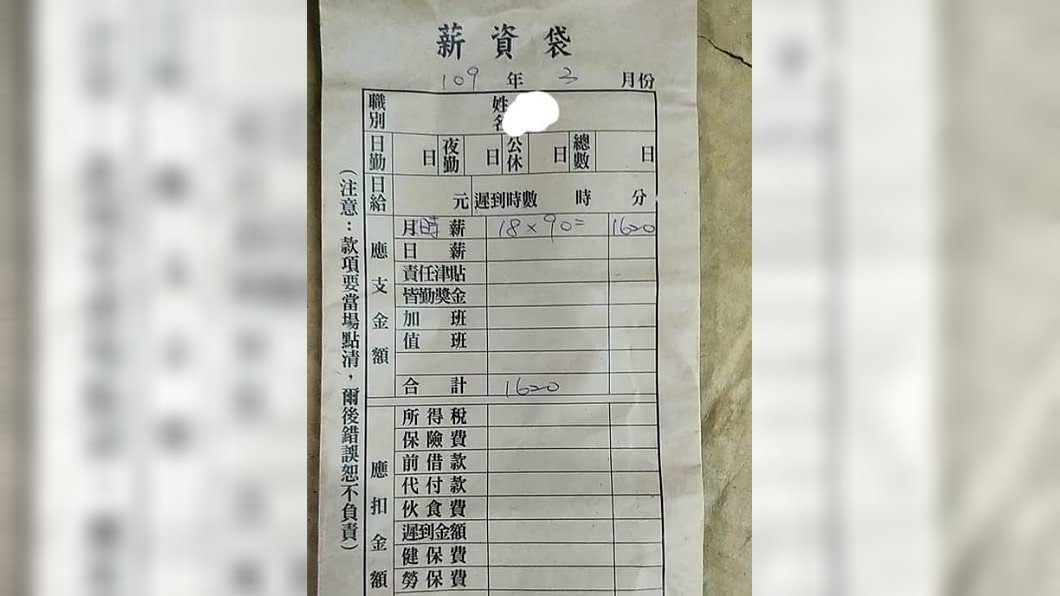 薪資袋
109年3月份
職別 姓名
日勤 日 夜勤 日 公休 日 總數 日
日給 元 遲到時數 時 分
應支金額
月時薪 18×90= 1620
日薪
責任津貼
皆勤獎金
加班
值班
合計 1620
應扣金額
所得稅
保險費
前借款
代付款
伙食費
遲到金額
健保費
勞保費
(注意：款項要當場點清，爾後錯誤恕不負責)